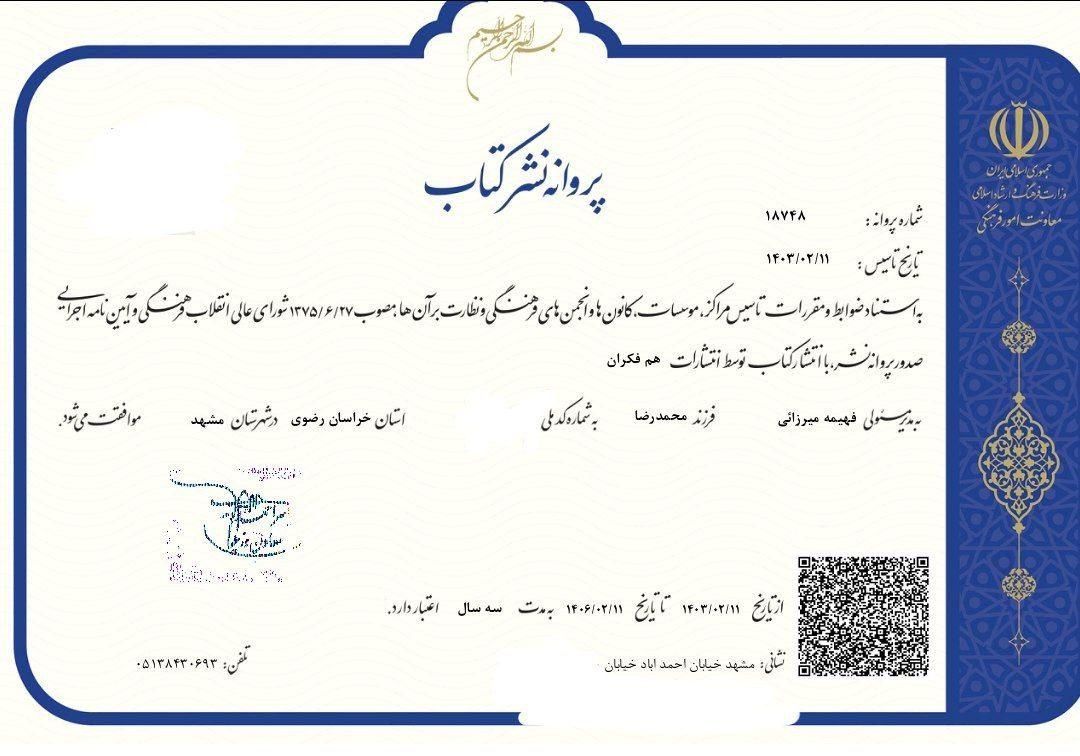 بسم الله الرحمن الرحیم
جمهوری اسلامی ایران
وزارت فرهنگ و ارشاد اسلامی
معاونت امور فرهنگی
پروانه نشر کتاب
شماره پروانه : ۱۸۷۴۸
تاریخ تاسیس : ۱۴۰۳/۰۲/۱۱
به استناد ضوابط و مقررات تاسیس مراکز، موسسات، کانون ها و انجمن های فرهنگی و نظارت بر آن ها مصوب ۱۳۷۵/۶/۲۷ شورای عالی انقلاب فرهنگی و آیین نامه اجرایی
صدور پروانه نشر، با انتشار کتاب توسط انتشارات هم فکران
به مدیر مسئولی فهیمه میرزائی فرزند محمدرضا به شماره کد ملی استان خراسان رضوی در شهرستان مشهد موافقت می شود.
از تاریخ ۱۴۰۳/۰۲/۱۱ تا تاریخ ۱۴۰۶/۰۲/۱۱ به مدت سه سال اعتبار دارد.
نشانی: مشهد خیابان احمد اباد خیابان
تلفن: ۰۵۱۳۸۴۳۰۶۹۳